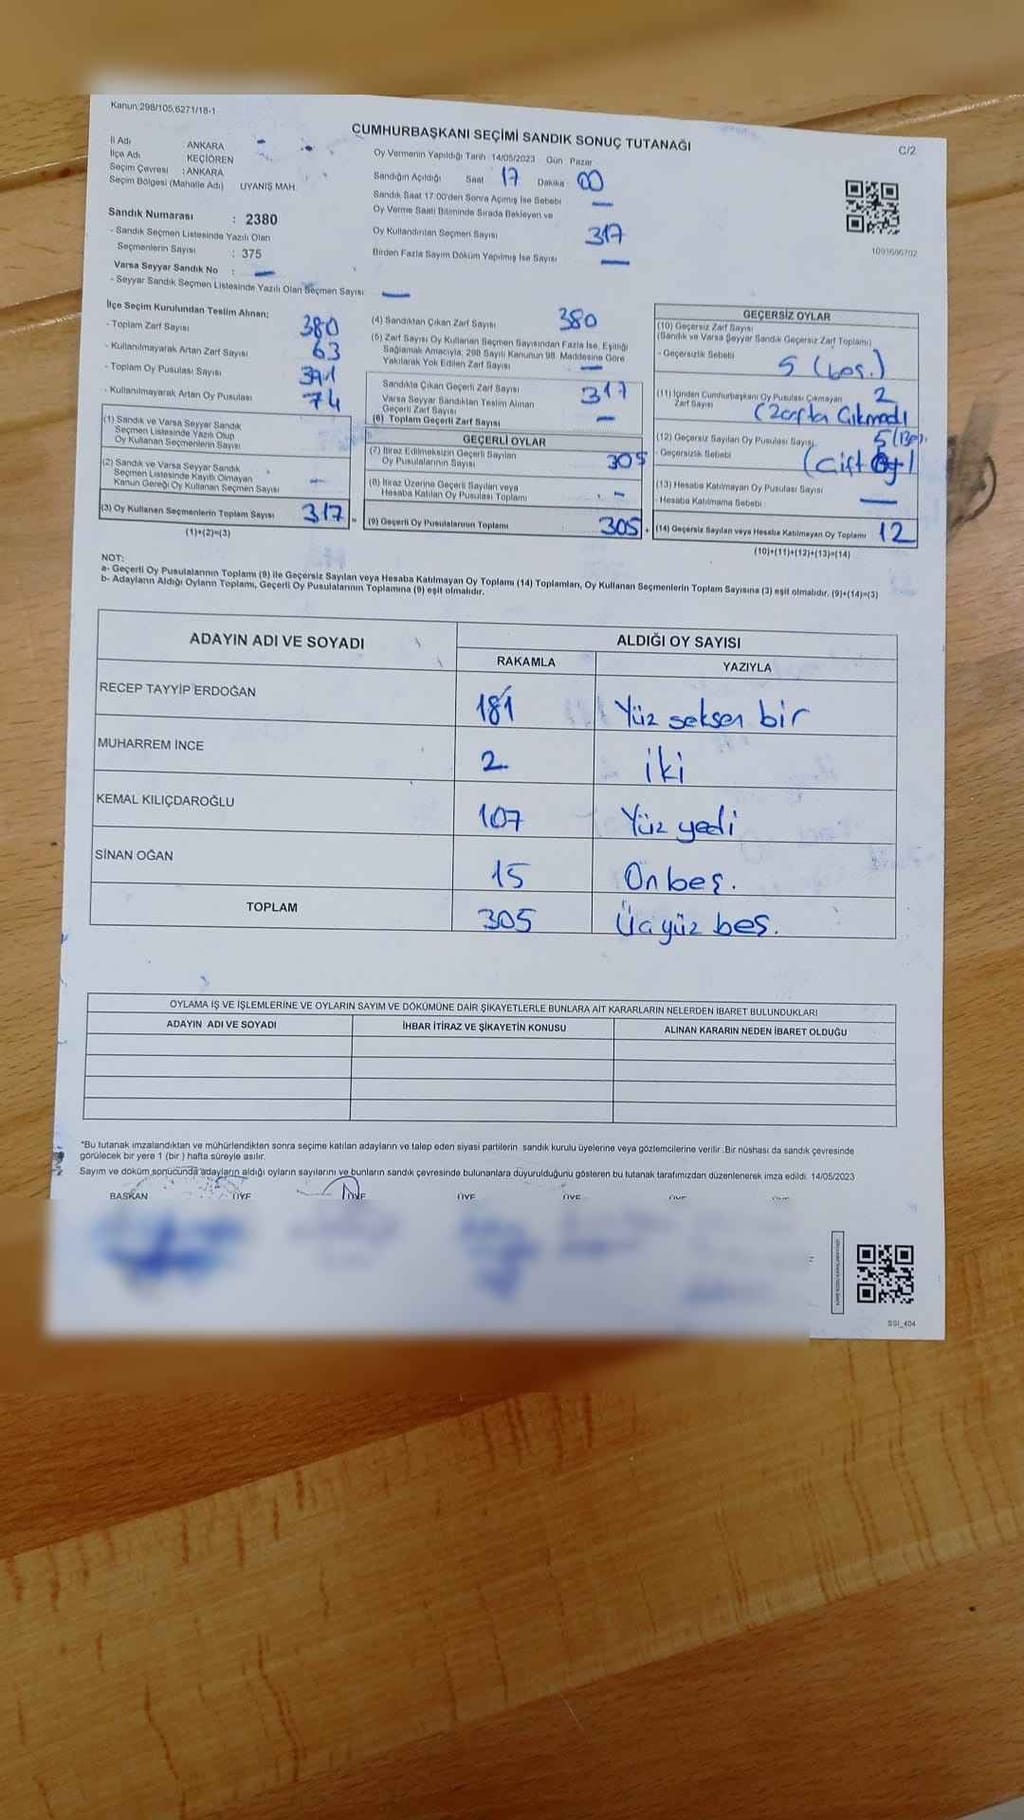 Kanun:298/105,6271/18-1
CUMHURBAŞKANI SEÇİMİ SANDIK SONUÇ TUTANAĞI
C/2
İl Adı : ANKARA
İlçe Adı : KEÇİÖREN
Seçim Çevresi : ANKARA
Seçim Bölgesi (Mahalle Adı) UYANIŞ MAH.
Oy Vermenin Yapıldığı Tarih 14/05/2023 Gün Pazar
Sandığın Açıldığı Saat 17 Dakika 00
Sandık Saat 17:00'den Sonra Açılmış İse Sebebi —
Oy Verme Saati Bitiminde Sırada Bekleyen ve
Oy Kullandırılan Seçmen Sayısı 317
Birden Fazla Sayım Döküm Yapılmış İse Sayısı —
Sandık Numarası : 2380
- Sandık Seçmen Listesinde Yazılı Olan
Seçmenlerin Sayısı : 375
Varsa Seyyar Sandık No : —
- Seyyar Sandık Seçmen Listesinde Yazılı Olan Seçmen Sayısı —
İlçe Seçim Kurulundan Teslim Alınan;
- Toplam Zarf Sayısı 380
- Kullanılmayarak Artan Zarf Sayısı 63
- Toplam Oy Pusulası Sayısı 391
- Kullanılmayarak Artan Oy Pusulası 74
(1) Sandık ve Varsa Seyyar Sandık
Seçmen Listesinde Yazılı Olup
Oy Kullanan Seçmenlerin Sayısı
(2) Sandık ve Varsa Seyyar Sandık
Seçmen Listesinde Kayıtlı Olmayan
Kanun Gereği Oy Kullanan Seçmen Sayısı —
(3) Oy Kullanan Seçmenlerin Toplam Sayısı 317
(1)+(2)=(3)
(4) Sandıktan Çıkan Zarf Sayısı 380
(5) Zarf Sayısı Oy Kullanan Seçmen Sayısından Fazla İse, Eşitliği
Sağlamak Amacıyla, 298 Sayılı Kanunun 98. Maddesine Göre
Yakılarak Yok Edilen Zarf Sayısı —
Sandıkta Çıkan Geçerli Zarf Sayısı 317
Varsa Seyyar Sandıktan Teslim Alınan
Geçerli Zarf Sayısı —
(6) Toplam Geçerli Zarf Sayısı
GEÇERLİ OYLAR
(7) İtiraz Edilmeksizin Geçerli Sayılan
Oy Pusulalarının Sayısı 305
(8) İtiraz Üzerine Geçerli Sayılan veya
Hesaba Katılan Oy Pusulası Toplamı —
(9) Geçerli Oy Pusulalarının Toplamı 305
GEÇERSİZ OYLAR
(10) Geçersiz Zarf Sayısı
(Sandık ve Varsa Seyyar Sandık Geçersiz Zarf Toplamı)
- Geçersizlik Sebebi 5 (beş.)
(11) İçinden Cumhurbaşkanı Oy Pusulası Çıkmayan
Zarf Sayısı 2
(Zarfta Çıkmadı
(12) Geçersiz Sayılan Oy Pusulası Sayısı 5 (Beş).
- Geçersizlik Sebebi (Çift oy)
(13) Hesaba Katılmayan Oy Pusulası Sayısı
- Hesaba Katılmama Sebebi —
(14) Geçersiz Sayılan veya Hesaba Katılmayan Oy Toplamı 12
(10)+(11)+(12)+(13)=(14)
NOT:
a- Geçerli Oy Pusulalarının Toplamı (9) ile Geçersiz Sayılan veya Hesaba Katılmayan Oy Toplamı (14) Toplamları, Oy Kullanan Seçmenlerin Toplam Sayısına (3) eşit olmalıdır. (9)+(14)=(3)
b- Adayların Aldığı Oyların Toplamı, Geçerli Oy Pusulalarının Toplamına (9) eşit olmalıdır.
ADAYIN ADI VE SOYADI
ALDIĞI OY SAYISI
RAKAMLA YAZIYLA
RECEP TAYYİP ERDOĞAN 181 Yüz seksen bir
MUHARREM İNCE 2 iki
KEMAL KILIÇDAROĞLU 107 Yüz yedi
SİNAN OĞAN 15 Onbeş.
TOPLAM 305 Üçyüz beş.
OYLAMA İŞ VE İŞLEMLERİNE VE OYLARIN SAYIM VE DÖKÜMÜNE DAİR ŞİKAYETLERLE BUNLARA AİT KARARLARIN NELERDEN İBARET BULUNDUKLARI
ADAYIN ADI VE SOYADI İHBAR İTİRAZ VE ŞİKAYETİN KONUSU ALINAN KARARIN NEDEN İBARET OLDUĞU
*Bu tutanak imzalandıktan ve mühürlendikten sonra seçime katılan adayların ve talep eden siyasi partilerin sandık kurulu üyelerine veya gözlemcilerine verilir. Bir nüshası da sandık çevresinde
görülecek bir yere 1 (bir) hafta süreyle asılır.
Sayım ve döküm sonucunda adayların aldığı oyların sayılarını ve bunların sandık çevresinde bulunanlara duyurulduğunu gösteren bu tutanak tarafımızdan düzenlenerek imza edildi. 14/05/2023
BAŞKAN ÜYE ÜYE ÜYE ÜYE
SSI_404